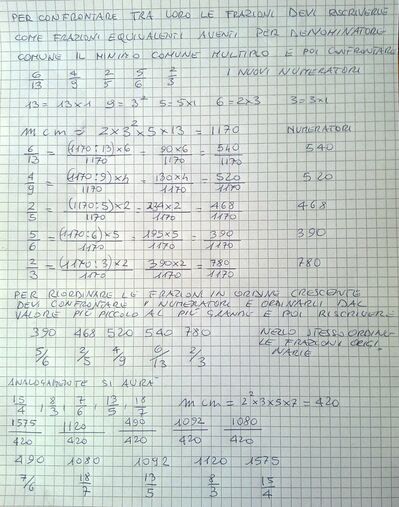 PER CONFRONTARE TRA LORO LE FRAZIONI DEVI RISCRIVERLE
COME FRAZIONI EQUIVALENTI AVENTI PER DENOMINATORE
COMUNE IL MINIMO COMUNE MULTIPLO E POI CONFRONTARE
6/13 4/9 2/5 5/6 2/3 I NUOVI NUMERATORI
13 = 13×1 9 = 3² 5 = 5×1 6 = 2×3 3 = 3×1
m c m = 2×3²×5×13 = 1170 NUMERATORI
6/13 = (1170:13)×6/1170 = 90×6/1170 = 540/1170 540
4/9 = (1170:9)×4/1170 = 130×4/1170 = 520/1170 520
2/5 = (1170:5)×2/1170 = 234×2/1170 = 468/1170 468
5/6 = (1170:6)×5/1170 = 195×5/1170 = 390/1170 390
2/3 = (1170:3)×2/1170 = 390×2/1170 = 780/1170 780
PER RIORDINARE LE FRAZIONI IN ORDINE CRESCENTE
DEVI CONFRONTARE I NUMERATORI E ORDINARLI DAL
VALORE PIÙ PICCOLO AL PIÙ GRANDE E POI RISCRIVERE
390 468 520 540 780 NELLO STESSO ORDINE
5/6 2/5 4/9 6/13 2/3 LE FRAZIONI ORIGI
NARIE
ANALOGAMENTE SI AVRÀ
15/4, 8/3, 7/6, 13/5, 18/7 m c m = 2²×3×5×7 = 420
1575/420 1120/420 490/420 1092/420 1080/420
490 1080 1092 1120 1575
7/6 18/7 13/5 8/3 15/4